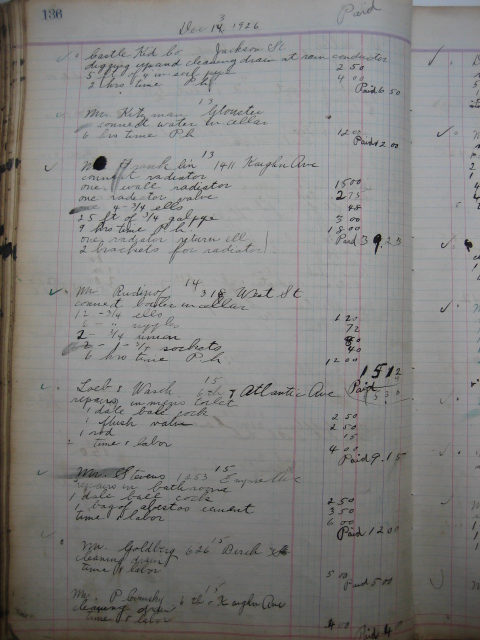 136
Paid
Dec 14, 1926
3
Castle Kid Co Jackson St
digging up and cleaning drain at rain conductor 2 50
5 ft of 4 in soil pipe 4 00
2 hrs time P.h Paid 6 50
13
Mr. Kitzman Gloucster
connect water in cellar
6 hrs time P.h 12 00
Paid 12 00
13
Mr Franklin 1411 Kaighn Ave
connect radiator
one wall radiator 15 00
one radiator valve 2 75
4 - 3/4 ells 48
25 ft of 3/4 gal pipe 3 00
9 hrs time P.h 18 00
one radiator return ell Paid 39.23
2 brackets for radiator
14
Mr. 318 West St
connect boiler in cellar
12 - 3/4 ells 1 20
6 - " nipples 72
2 - 3/4 union 80
2 - 1 - 3/4 sockets 40
6 hrs time P.h 12 00
1512
Paid
15
Loeb & Wasch 6th & Atlantic Ave
repairs in mens toilet
1 dale ball cock 2 50
1 flush valve 2 50
1 rod 15
time & labor 4 00
Paid 9.15
15
Mr. Stevens 1253 Empire Ave
repairs in bathroom
1 dale ball cock 2 50
1 bag of abestos cement 3 50
time & labor 6 00
Paid 12 00
15
Mr. Goldberg 626 Birch St
cleaning drain
time & labor 5 00
Paid 5 00
15
Mr. P. 6th & Kaighn Ave
cleaning drain
time & labor 4 50
Paid 4